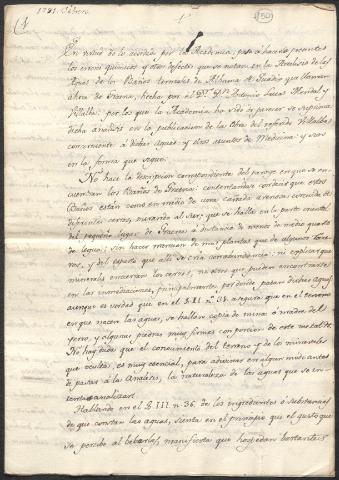 1791. Febrero
150
En virtud de lo acordado por la Academia, paso à hacerla presentes
los errores quimicos y otros defectos que se notan en la Analisis de las
Aguas de los Baños termales de Alhama de Guadix que llaman
ahora de Graena, hecha por el Dor. Dn. Antonio Lucas Montal y
Villalba; por los que la Academia ha sido de parecer se suprima
dicha analisis en la publicacion de la obra del referido Villalba
concerniente à dichas Aguas y otros asuntos de Medicina: y son
en la forma que sigue.
No hace la descripcion correspondiente del parage en que se en-
cuentran los Baños de Graena: contentandose con decir que estos
Baños están como en medio de una Cañada arenosa circuida de
diferentes cerros, mirando al Sur, que se halla en la parte oriental
del pequeño lugar de Graena à distancia de menos de medio quarto
de legua: sin hacer mencion de mas plantas que de algunos Tome-
ros, y del esparto que alli se cria con abundancia; ni explicar que
minerales encierran los cerros, ni otros que pueden encontrarse
en las inmediaciones, principalmente por donde pasan dichas aguas;
aunque es verdad que en el § II nº 31 asegura que en el terreno
en que nacen las aguas, se hallan copia de mina ò madre del
yerro, y algunas piedras muy firmes con porcion de este metal.
No hay duda que el conocimiento del terreno y de los minerales
que oculta, es muy esencial, para adivinar en algun modo antes
de pasar à la Analisis, la naturaleza de las aguas que se in-
tenta analizar.
Hablando en el § III nº 36. de los ingredientes ò substancias
de que constan las aguas, sienta en el principio que el gusto que
se percibe al beberlas, manifiesta que hospedan bastante